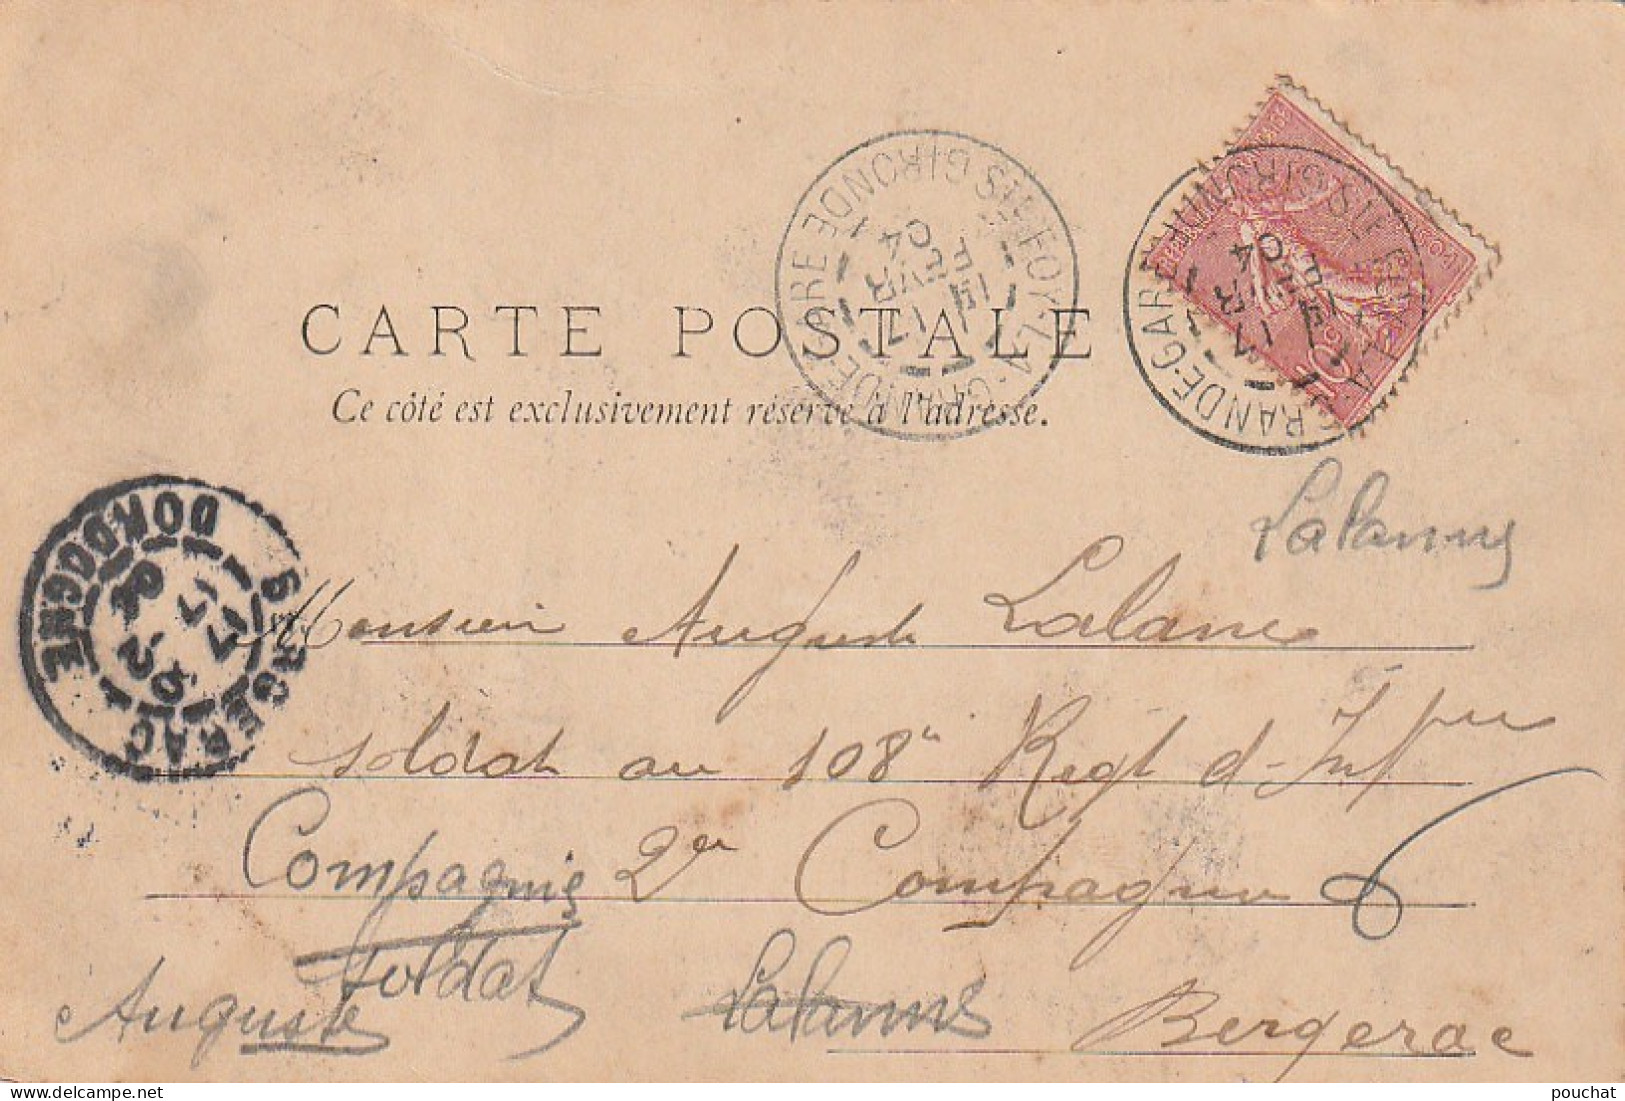 CARTE POSTALE
Ce côté est exclusivement réservé à l'adresse.
STE FOY-LA-GRANDE-GARE GIRONDE
1E
17
FEVR
04
STE FOY-LA-GRANDE-GARE GIRONDE
1E
17
R
04
10c
BERGERAC DORDOGNE
17
17 -2
04
Lalanne
Monsieur Auguste Lalanne
soldat au 108e Regt d'Infrie
Compagnie 2e Compagnie
soldat
Auguste Lalanne Bergerac
pouchat